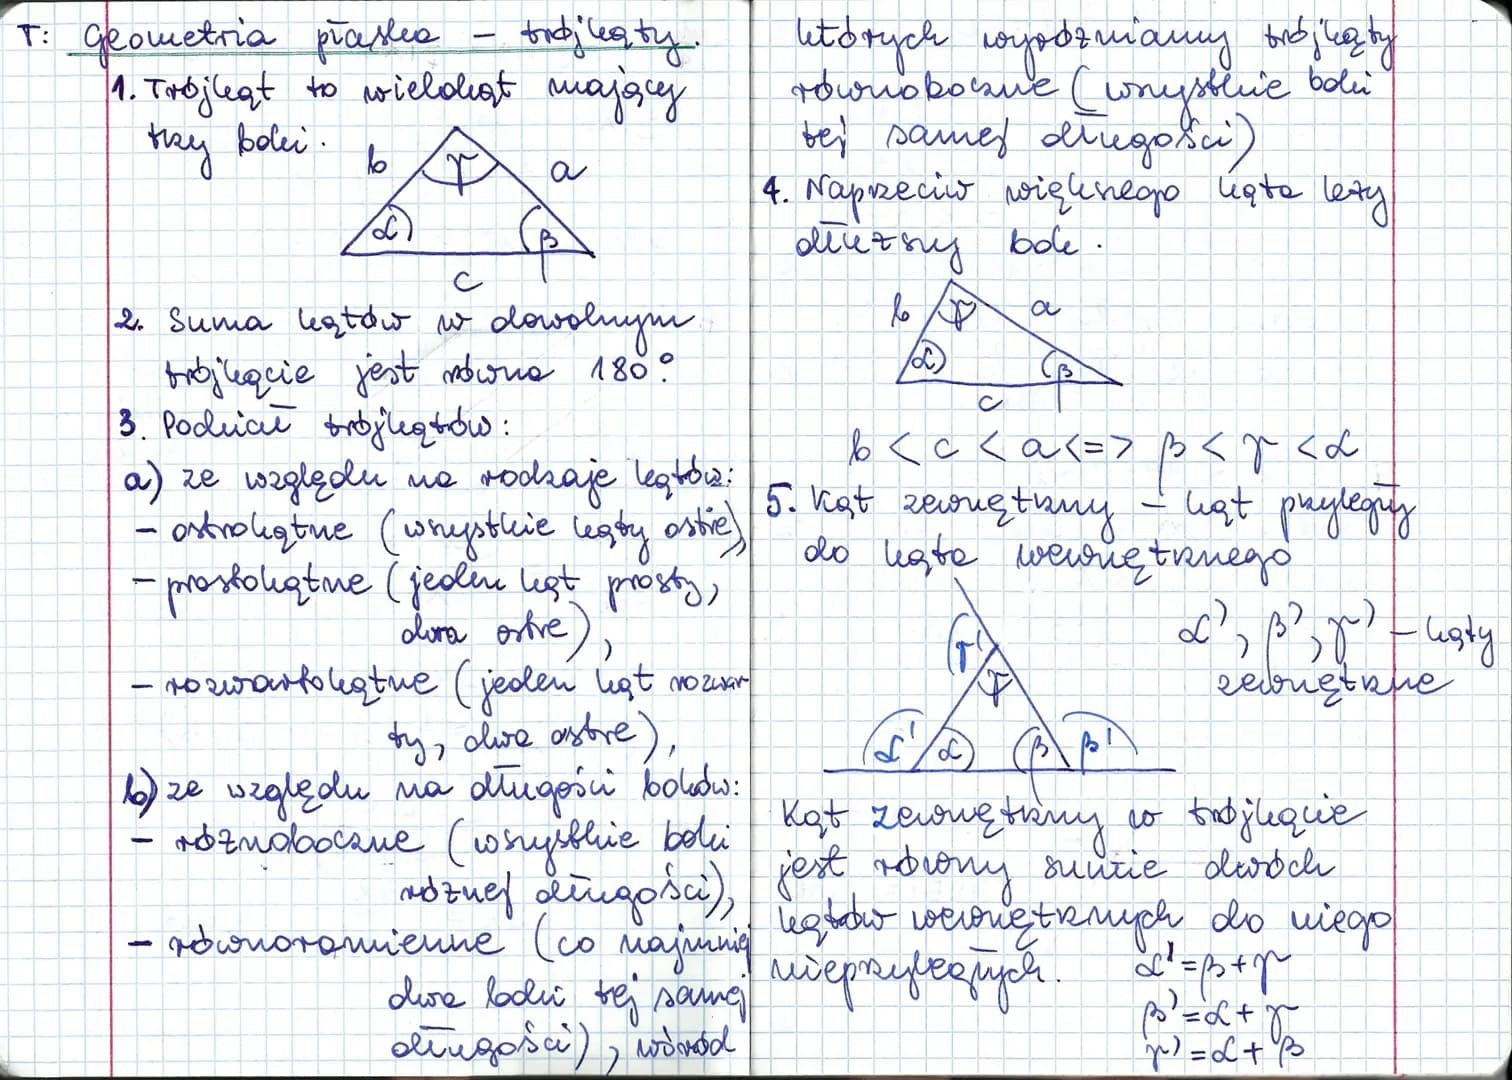 T: Geometria płaska – trójkąty.
1. Trójkąt to wielokąt mający
trzy boki.
b γ a
α β
c
2. Suma kątów w dowolnym
trójkącie jest równa 180°.
3. Podział trójkątów:
a) ze względu na rodzaje kątów:
– ostrokątne (wszystkie kąty ostre),
– prostokątne (jeden kąt prosty,
dwa ostre),
– rozwartokątne (jeden kąt rozwar
ty, dwa ostre),
b) ze względu na długości boków:
– różnoboczne (wszystkie boki
różnej długości),
– równoramienne (co najmniej
dwa boki tej samej
długości), wśród
których wyróżniamy trójkąty
równoboczne (wszystkie boki
tej samej długości)
4. Naprzeciw większego kąta leży
dłuższy bok.
b γ a
α β
c
b < c < a <=> β < γ < α
5. Kąt zewnętrzny – kąt przyległy
do kąta wewnętrznego
γ' α', β', γ' – kąty
γ zewnętrzne
α' α β β'
Kąt zewnętrzny w trójkącie
jest równy sumie dwóch
kątów wewnętrznych do niego
nieprzyległych. α' = β + γ
β' = α + γ
γ' = α + β